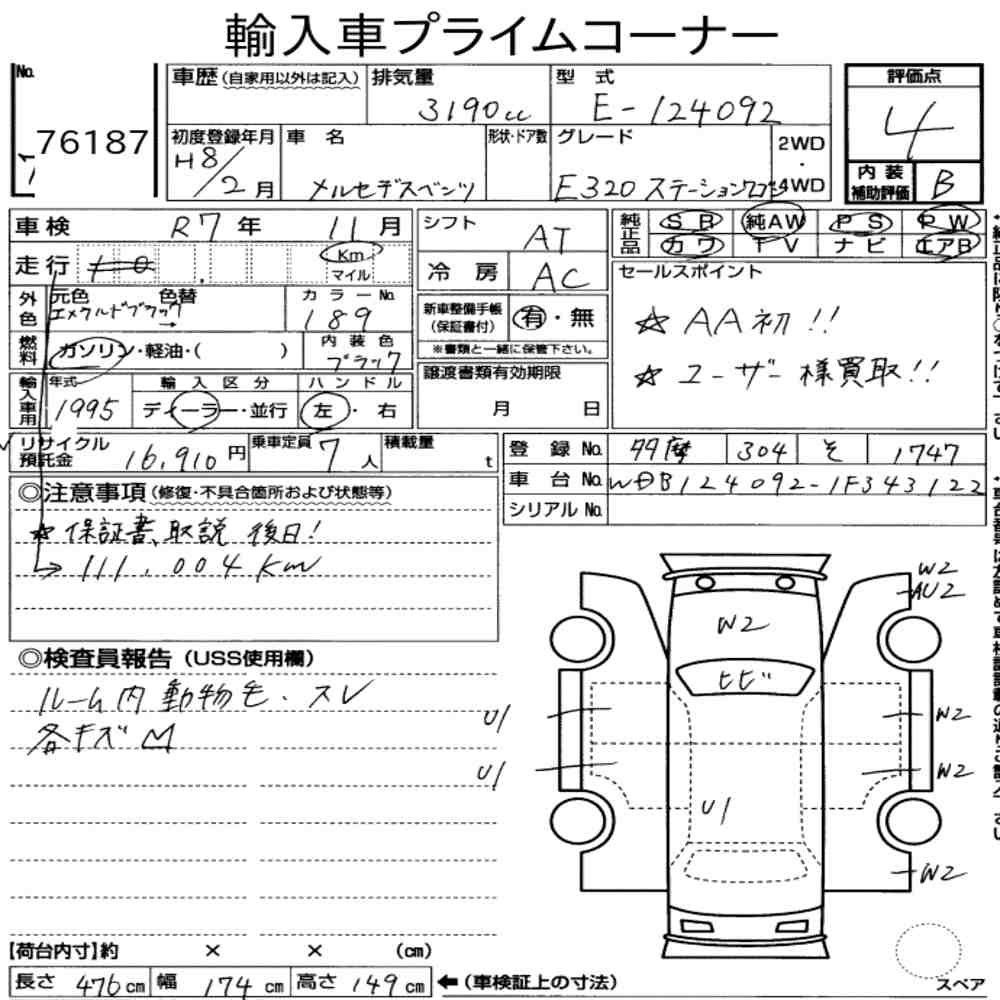 輸入車プライムコーナー
No. 76187
車歴(自家用以外は記入) 排気量 3190cc 型式 E-124092
評価点 4
初度登録年月 H8/2月 車名 メルセデスベンツ 形状・ドア数 グレード E320 ステーションワゴン 2WD・4WD
内装補助評価 B
車検 R7年 11月
シフト AT
純正品 SR 純AW PS PW
カワ TV ナビ エアB
走行 Km マイル
冷房 AC
セールスポイント
外色 元色 色替 カラーNo
エメラルドブラック → 189
新車整備手帳(保証書付) 有・無
※書類と一緒に保管下さい。
☆ AA初!!
燃料 ガソリン・軽油・( ) 内装色 ブラック
☆ ユーザー様買取!!
譲渡書類有効期限
月 日
輸入車用 年式 1995 輸入区分 ディーラー・並行 ハンドル 左・右
リサイクル預託金 16,910円 乗車定員 7人 積載量 t
登録No. 多摩 304 そ 1747
車台No. WDB124092-1F343122
シリアルNo.
◎注意事項(修復・不具合箇所および状態等)
☆保証書、取説 後日!
→111,004Km
◎検査員報告(USS使用欄)
ルーム内動物毛・スレ
各キズ凹
W2
AU2
W2
ヒビ
U1
W2
U1
W2
U1
W2
スペア
【荷台内寸】約 × × (cm)
長さ 476cm 幅 174cm 高さ 149cm ←(車検証上の寸法)